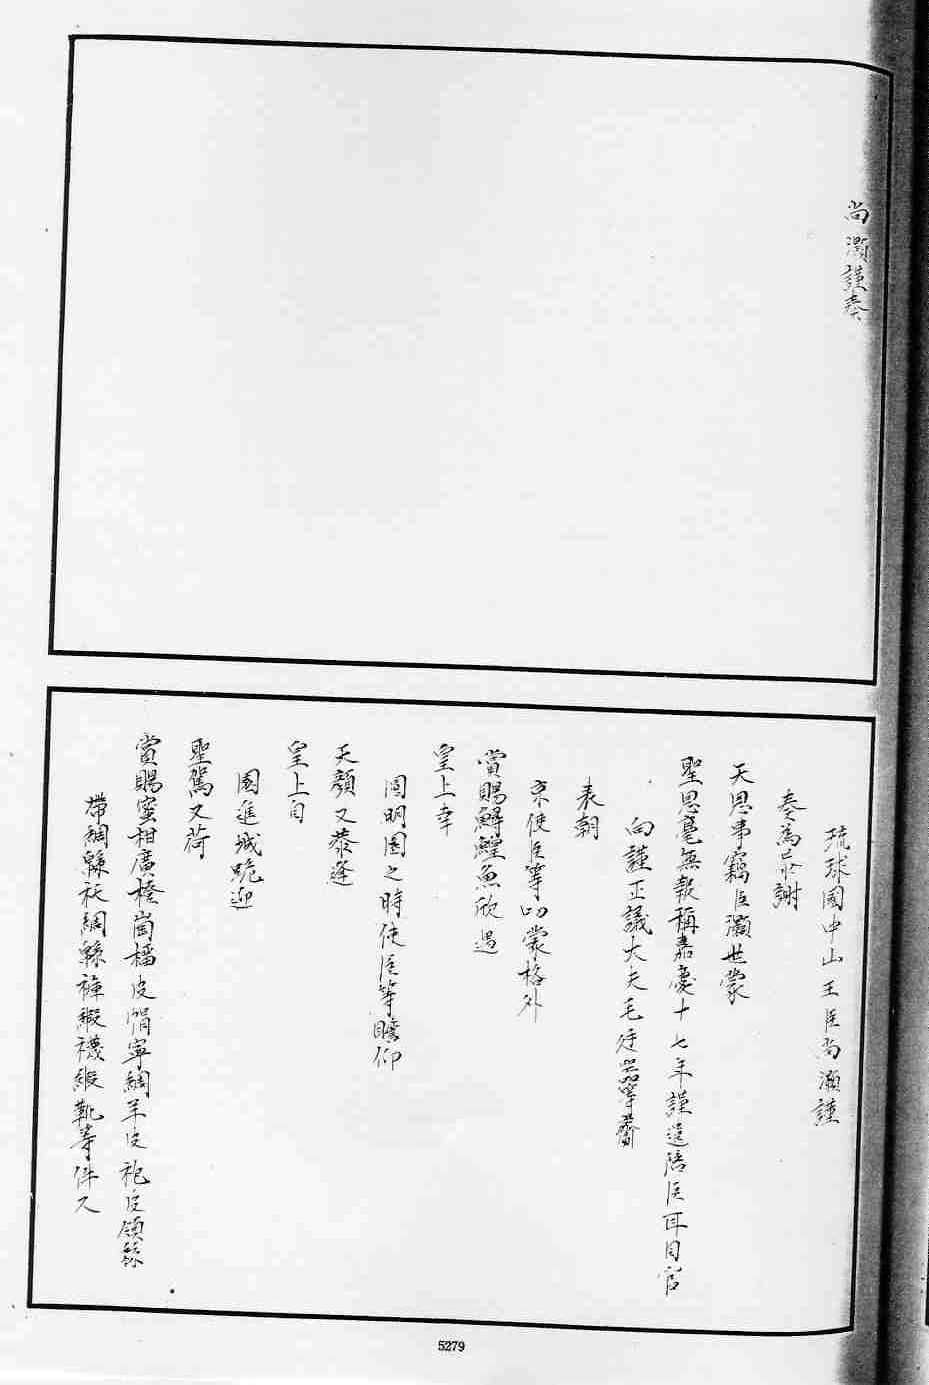 尚灝謹奏
琉球國中山王臣尚灝謹
奏為恭謝
天恩事竊臣灝世蒙
聖恩毫無報稱嘉慶十七年謹遣陪臣耳目官
向謹正議大夫毛廷器等齎
表朝
京使臣等叨蒙格外
賞賜鱘鰉魚欣遇
皇上幸
圓明園之時使臣等瞻仰
天顏又恭逢
皇上自
園進城跪迎
聖駕又荷
賞賜蜜柑廣橙 皮 寧綢羊皮袍皮領絲
帶綢緜襖綢緜褲緞襪緞靴等件又
5279